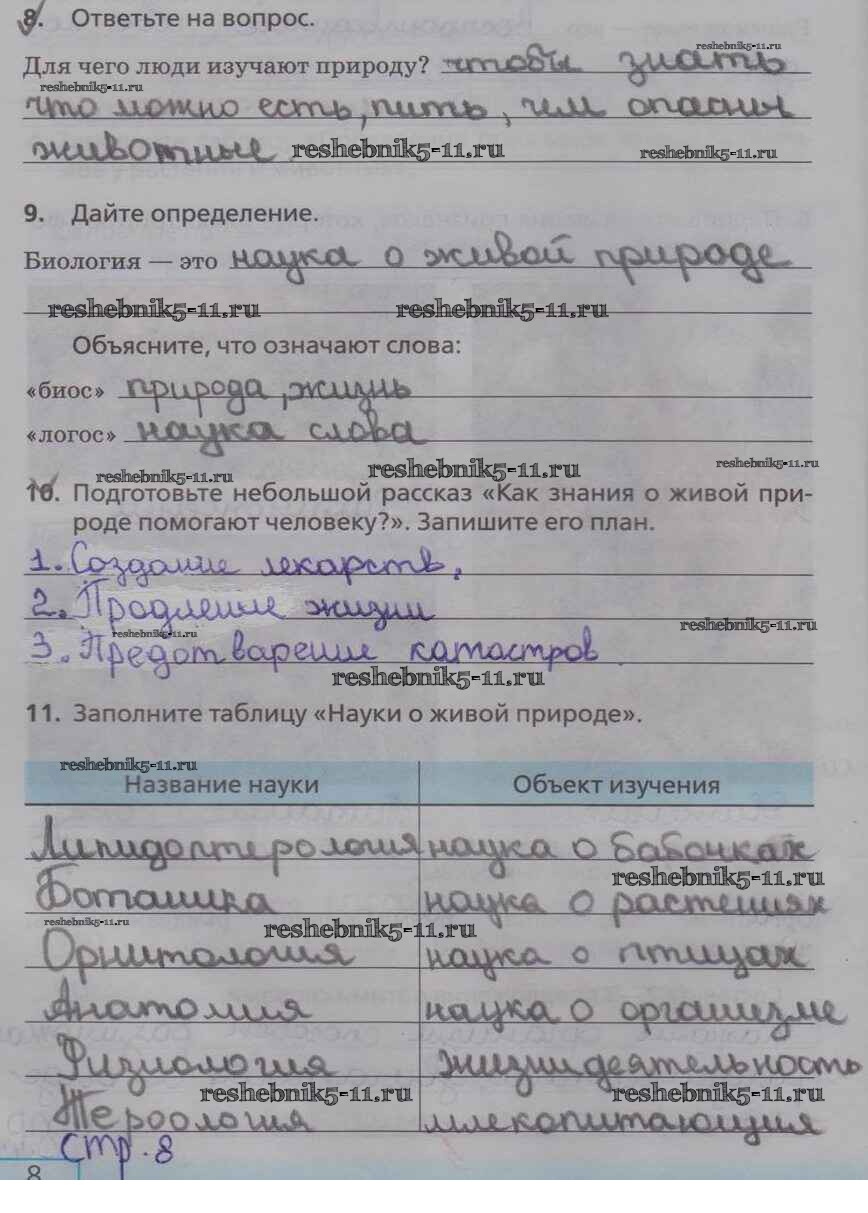 8. Ответьте на вопрос.
reshebnik5-11.ru
Для чего люди изучают природу? чтобы знать
reshebnik5-11.ru
что можно есть, пить, чем опасны
животные reshebnik5-11.ru reshebnik5-11.ru
9. Дайте определение.
Биология — это наука о живой природе
reshebnik5-11.ru reshebnik5-11.ru
Объясните, что означают слова:
«биос» природа, жизнь
«логос» наука слова
reshebnik5-11.ru reshebnik5-11.ru reshebnik5-11.ru
10. Подготовьте небольшой рассказ «Как знания о живой при-
роде помогают человеку?». Запишите его план.
1. Создание лекарств,
2. Продление жизни
reshebnik5-11.ru reshebnik5-11.ru
3. Предотварение катастров
reshebnik5-11.ru
11. Заполните таблицу «Науки о живой природе».
reshebnik5-11.ru
Название науки Объект изучения
Липидоптерология наука о бабочках
reshebnik5-11.ru
Ботаника наука о растениях
reshebnik5-11.ru reshebnik5-11.ru
Орнитология наука о птицах
Анатомия наука о организме
Физиология жизнидеятельность
reshebnik5-11.ru reshebnik5-11.ru
Терология млекопитающия
стр. 8
8